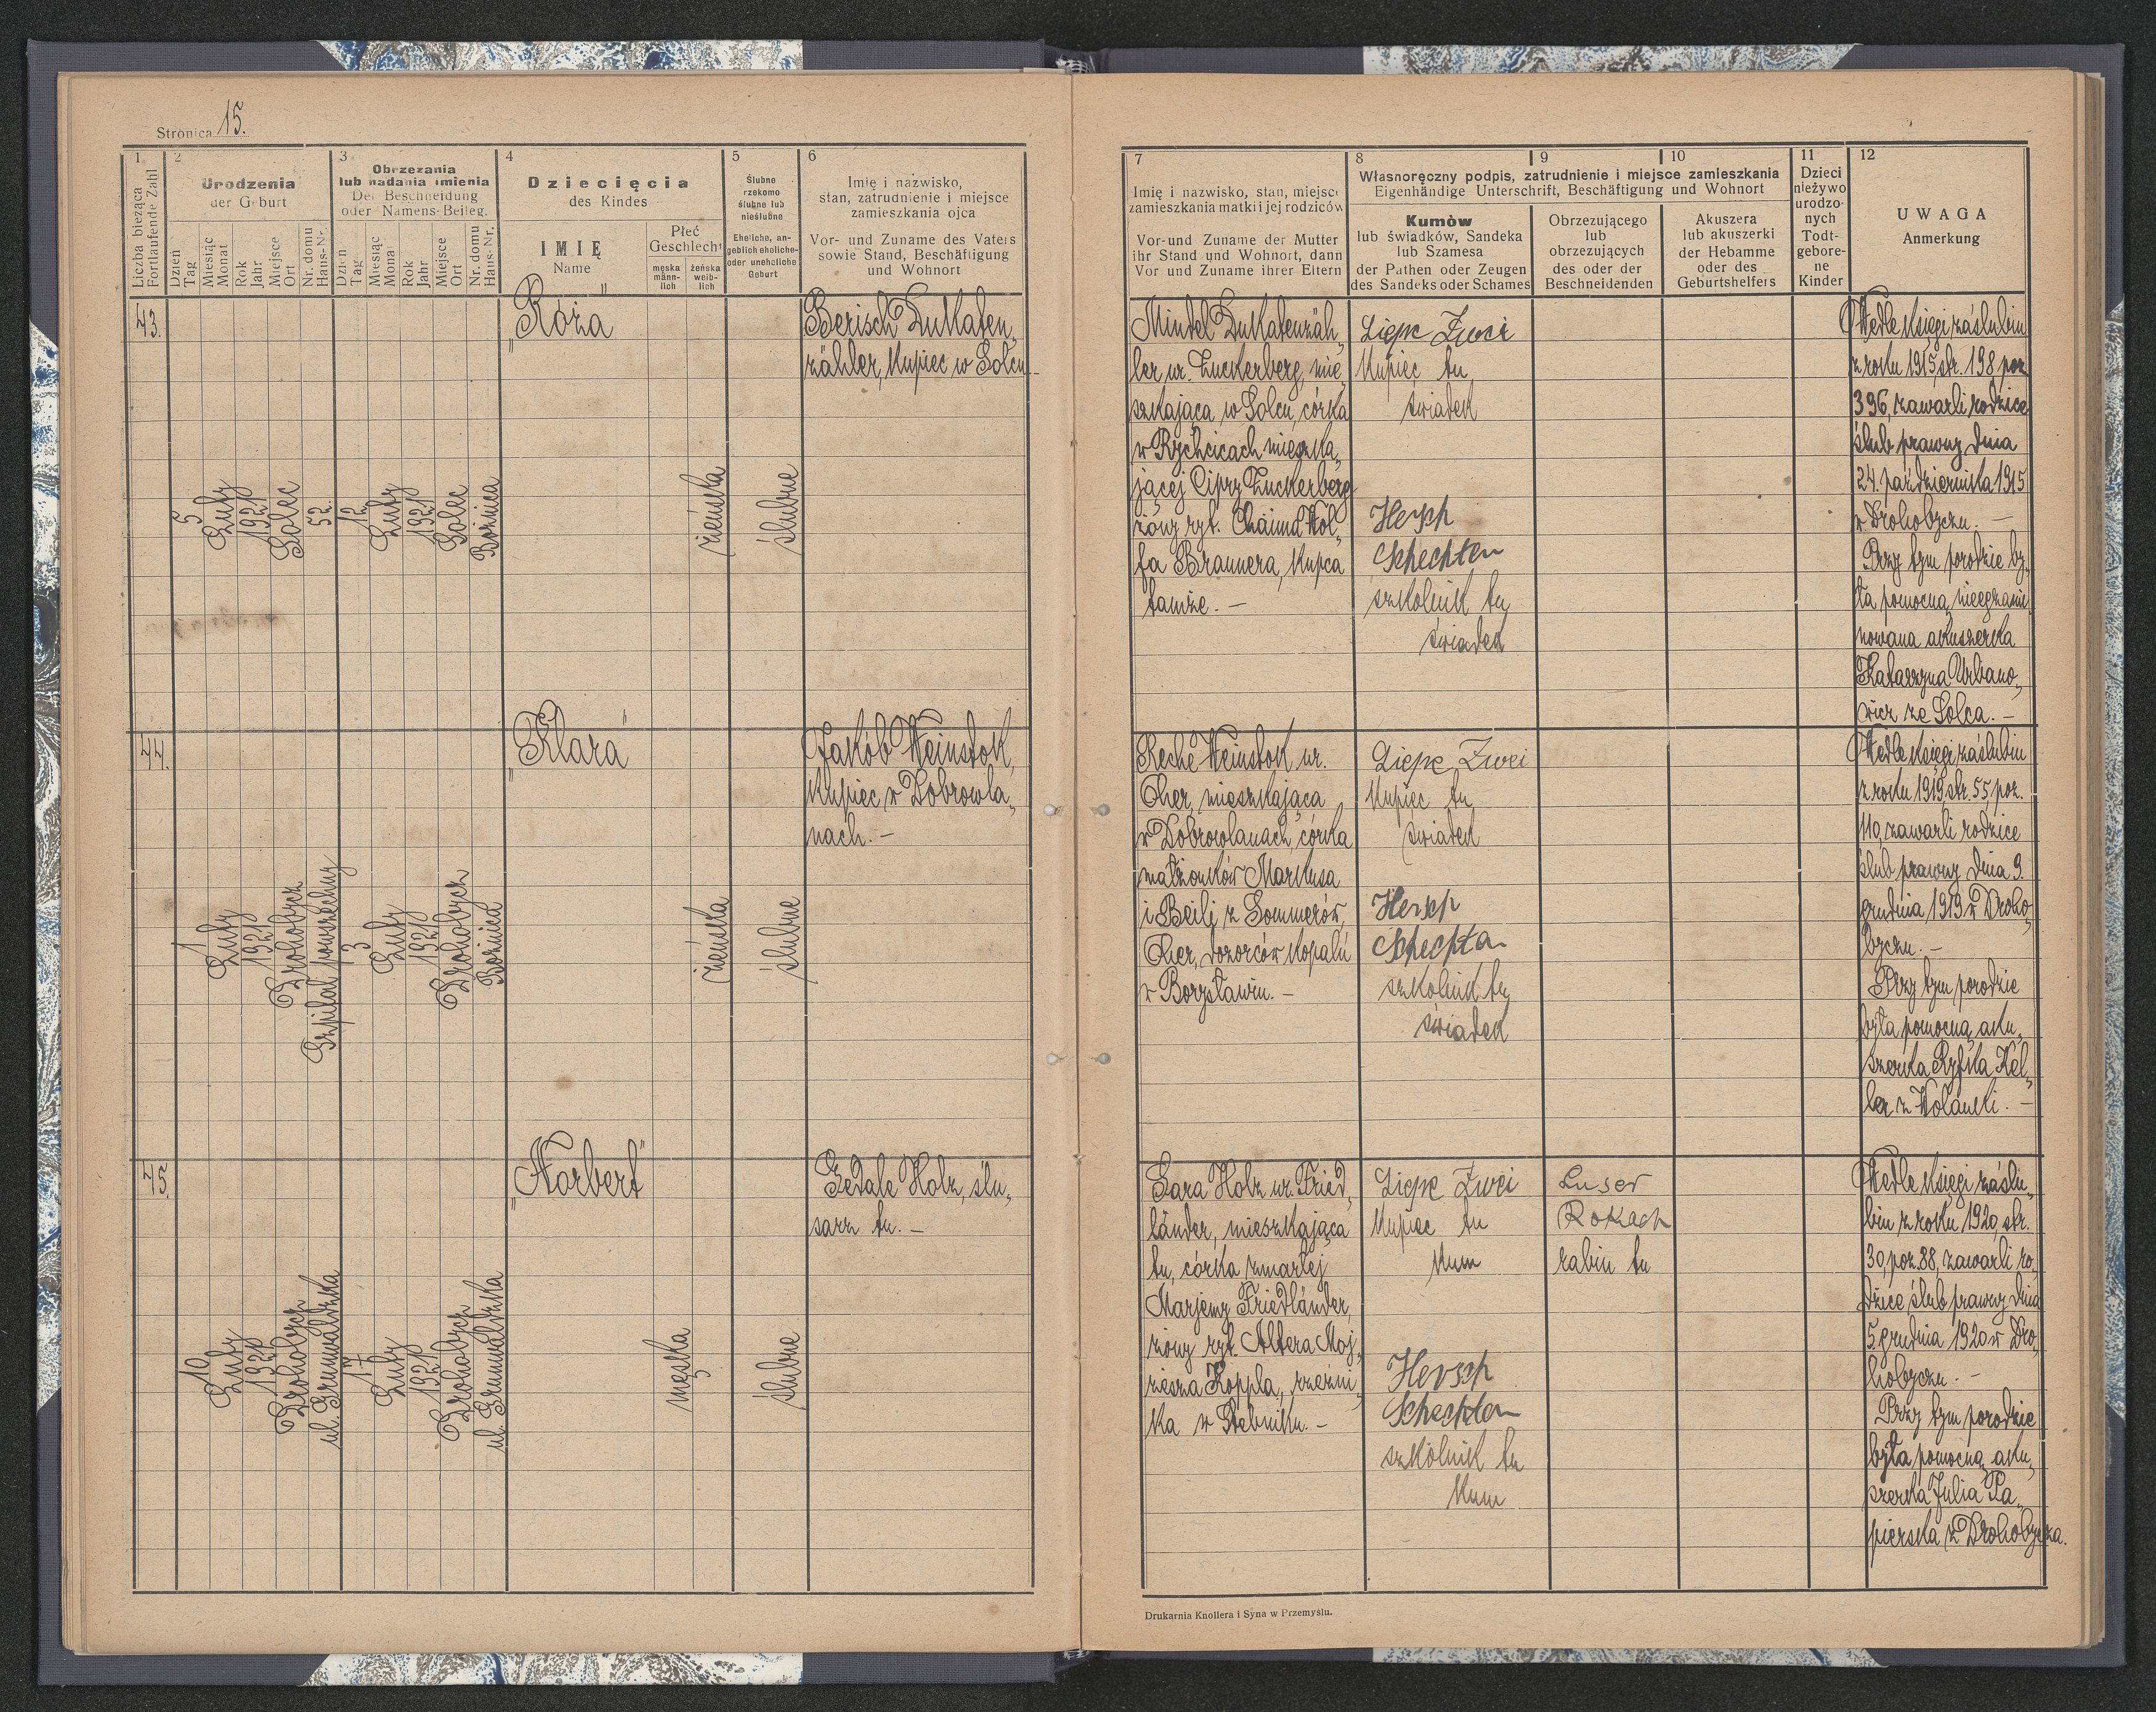 Stronica 15.
1
Liczba bieżąca
Fortlaufende Zahl
2
Urodzenia
der Geburt
Dzień
Tag
Miesiąc
Monat
Rok
Jahr
Miejsce
Ort
Nr. domu
Haus-Nr.
3
Obrzezania
lub nadania imienia
Der Beschneidung
oder Namens-Beileg.
Dzień
Tag
Miesiąc
Monat
Rok
Jahr
Miejsce
Ort
Nr. domu
Haus-Nr.
4
Dziecięcia
des Kindes
IMIĘ
Name
Płeć
Geschlecht
męska
männ-
lich
żeńska
weib-
lich
5
Ślubne
rzekomo
ślubne lub
nieślubne
Eheliche, an-
geblich eheliche-
oder uneheliche
Geburt
6
Imię i nazwisko,
stan, zatrudnienie i miejsce
zamieszkania ojca
Vor- und Zuname des Vaters
sowie Stand, Beschäftigung
und Wohnort
43.
5
Luty
1921
Solec
52.
12
Luty
1921
Solec
Bożnica
„Róża"
żeńska
ślubne
Berisch Dukaten„
zähler, kupiec w Solcu
44.
1
Luty
1921
Drohobycz
Szpital powszechny
3
Luty
1921
Drohobycz
Bożnica
„Klara"
żeńska
ślubne
Jakób Weinstok,
kupiec w Dobrowla„
nach. –
45.
10
Luty
1921
Drohobycz
ul. Grunwaldzka
17
Luty
1921
Drohobycz
ul. Grunwaldzka
„Norbert"
męska
ślubne
Gedale Holz, ślu„
sarz tu. –
7
Imię i nazwisko, stan, miejsce
zamieszkania matki i jej rodziców
Vor-und Zuname der Mutter
ihr Stand und Wohnort, dann
Vor und Zuname ihrer Eltern
8
9
10
Własnoręczny podpis, zatrudnienie i miejsce zamieszkania
Eigenhändige Unterschrift, Beschäftigung und Wohnort
Kumòw
lub świadków, Sandeka
lub Szamesa
der Pathen oder Zeugen
des Sandeks oder Schames
Obrzezującego
lub
obrzezujących
des oder der
Beschneidenden
Akuszera
lub akuszerki
der Hebamme
oder des
Geburtshelfers
11
Dzieci
nieżywo
urodzo-
nych
Todt-
gebore-
ne
Kinder
12
UWAGA
Anmerkung
Mindel Dukatenzäh„
ler ur. Zuckerberg, mie„
szkająca w Solcu, córka
w Rychcicach mieszka„
jącej Cipry Zuckerberg
żony ryt. Chaima Wol„
fa Braunera, kupca
tamże. –
Liepe Zwei
kupiec tu
świadek
Hersch
Schechter
szkolnik tu
świadek
Wedle księgi zaślubin
z roku 1915, str. 198 poz.
396, zawarli rodzice
ślub prawny dnia
24. października 1915
w Drohobyczu. –
Przy tym porodzie by„
ła pomocną nieegzami„
nowana akuszerka
Katarzyna Urbano„
wicz ze Solca. –
Reche Weinstok ur.
Cher, mieszkająca
w Dobrowlanach, córka
małżonków Markusa
i Beili z Sommerów,
Cher, dozorców kopalń
w Borysławiu. –
Liepe Zwei
kupiec tu
świadek
Hersch
Schechter
szkolnik tu
świadek
Wedle księgi zaślubin
z roku 1919, str. 55, poz.
110, zawarli rodzice
ślub prawny dnia 9.
grudnia 1919 w Droho„
byczu. –
Przy tym porodzie
była pomocną aku„
szerka Ryfka Kel„
ler z Wolanki. –
Sara Holz ur. Fried„
länder, mieszkająca
tu, córka zmarłej
Marjemy Friedländer,
żony ryt. Altera Moj„
żesza Koppla, rzeźni„
ka w Stebniku. –
Liepe Zwei
kupiec tu
kum
Hersch
Schechter
szkolnik tu
kum
Luser
Rokach
rabin tu
Wedle księgi zaślu„
bin z roku 1920, str.
30, poz. 88, zawarli ro„
dzice ślub prawny dnia
5. grudnia 1920 w Dro„
hobyczu. –
Przy tym porodzie
była pomocną aku„
szerka Julia Pa„
pierska z Drohobycza.
Drukarnia Knollera i Syna w Przemyślu.